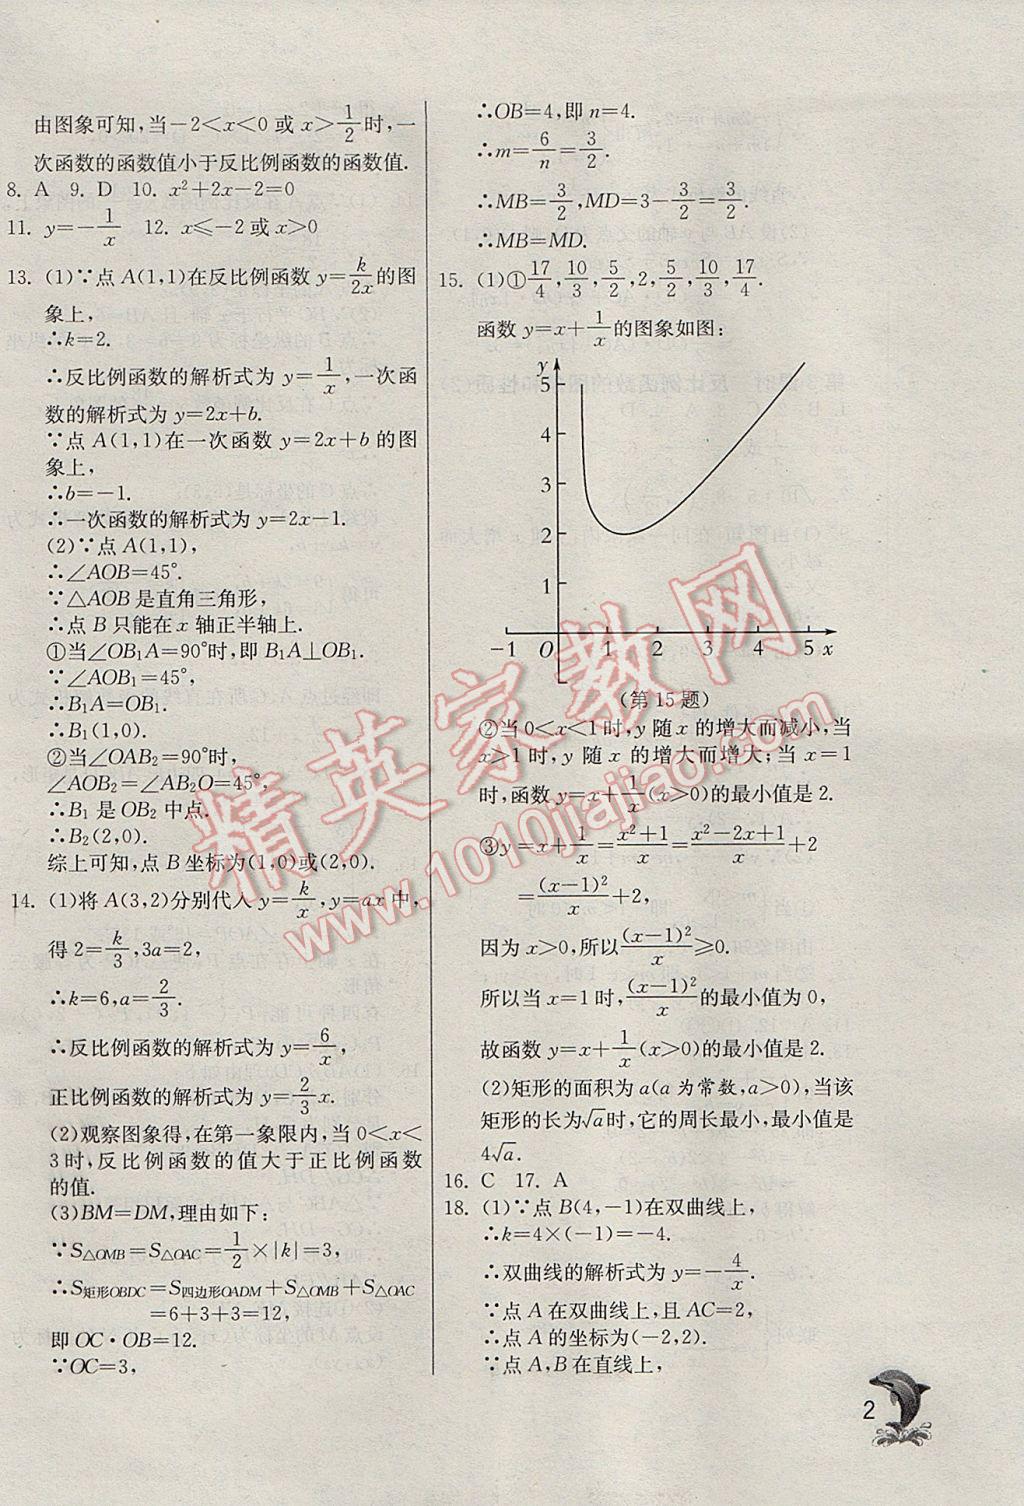 由图象可知,当－2<x<0 或 x>1/2时,一
次函数的函数值小于反比例函数的函数值.
8. A 9. D 10. x²+2x-2=0
11. y=-1/x 12. x≤-2 或 x>0
13. (1)∵点 A(1,1)在反比例函数 y=k/2x的图
象上,
∴k=2.
∴反比例函数的解析式为 y=1/x,一次函
数的解析式为 y=2x+b.
∵点 A(1,1)在一次函数 y=2x+b 的图
象上,
∴b=-1.
∴一次函数的解析式为 y=2x-1.
(2)∵点 A(1,1),
∴∠AOB=45°.
∵△AOB 是直角三角形,
∴点 B 只能在 x 轴正半轴上.
①当∠OB₁A=90°时,即 B₁A⊥OB₁.
∵∠AOB₁=45°,
∴B₁A=OB₁.
∴B₁(1,0).
②当∠OAB₂=90°时,
∠AOB₂=∠AB₂O=45°,
∴B₁ 是 OB₂ 中点.
∴B₂(2,0).
综上可知,点 B 坐标为(1,0)或(2,0).
14. (1)将 A(3,2)分别代入 y=k/x,y=ax 中,
得 2=k/3,3a=2,
∴k=6,a=2/3.
∴反比例函数的解析式为 y=6/x,
正比例函数的解析式为 y=2/3x.
(2)观察图象得,在第一象限内,当 0<x<
3时,反比例函数的值大于正比例函数
的值.
(3)BM=DM,理由如下:
∵S△OMB=S△OAC=1/2×|k|=3,
∴S矩形OBDC=S四边形OADM+S△OMB+S△OAC
=6+3+3=12,
即 OC·OB=12.
∵OC=3,
∴OB=4,即 n=4.
∴m=6/n=3/2.
∴MB=3/2,MD=3-3/2=3/2.
∴MB=MD.
15. (1)①17/4,10/3,5/2,2,5/2,10/3,17/4.
函数 y=x+1/x的图象如图:
y
5
4
3
2
1
-1 O 1 2 3 4 5 x
(第 15 题)
②当 0<x<1 时,y 随 x 的增大而减小,当
x>1 时,y 随 x 的增大而增大;当 x=1
时,函数 y=x+1/x(x>0)的最小值是 2.
③y=x+1/x=x²+1/x=x²-2x+1/x+2
=(x-1)²/x+2,
因为 x>0,所以(x-1)²/x≥0.
所以当 x=1 时,(x-1)²/x的最小值为 0,
故函数 y=x+1/x(x>0)的最小值是 2.
(2)矩形的面积为 a(a 为常数,a>0),当该
矩形的长为√a时,它的周长最小,最小值是
4√a.
16. C 17. A
18. (1)∵点 B(4,-1)在双曲线上,
∴k=4×(-1)=-4.
∴双曲线的解析式为 y=-4/x.
∵点 A 在双曲线上,且 AC=2,
∴点 A 的坐标为(-2,2).
∵点 A,B 在直线上,
2
精英家教网
www.1010jiajiao.com